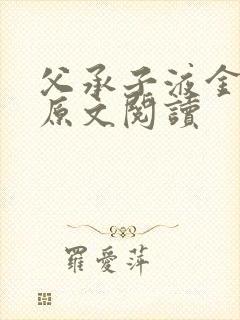 父承子液金
原文閱讀
羅愛萍